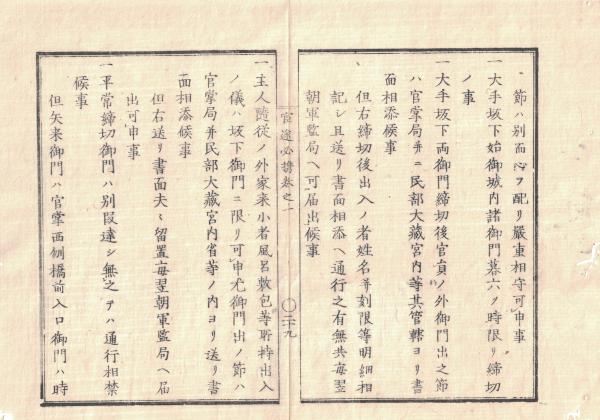 節ハ別而心ヲ配リ嚴重相守可申事
一大手坂下始御城内諸御門暮六ノ時限リ締切
ノ事
一大手坂下両御門締切後官員ノ外御門出之節
ハ官掌局并ニ民部大藏宮内等其管轄ヨリ書
面相添候事
但右締切後出入ノ者姓名并刻限等明細相
記シ且送リ書面相添ヘ通行之有無共毎翌
朝軍監局ヘ可届出候事
官途必携卷之一
〇二十九
一主人隨従ノ外家来小者風呂敷包等所持出入
ノ儀ハ坂下御門ニ限リ可申尤御門出ノ節ハ
官掌局并民部大藏宮内省等ノ内ヨリ送リ書
面相添候事
但右送リ書面夫々留置毎翌朝軍監局ヘ届
出可申事
一平常締切御門ハ別段達シ無之テハ通行相禁
候事
但矢来御門ハ官掌西刎橋前入口御門ハ時